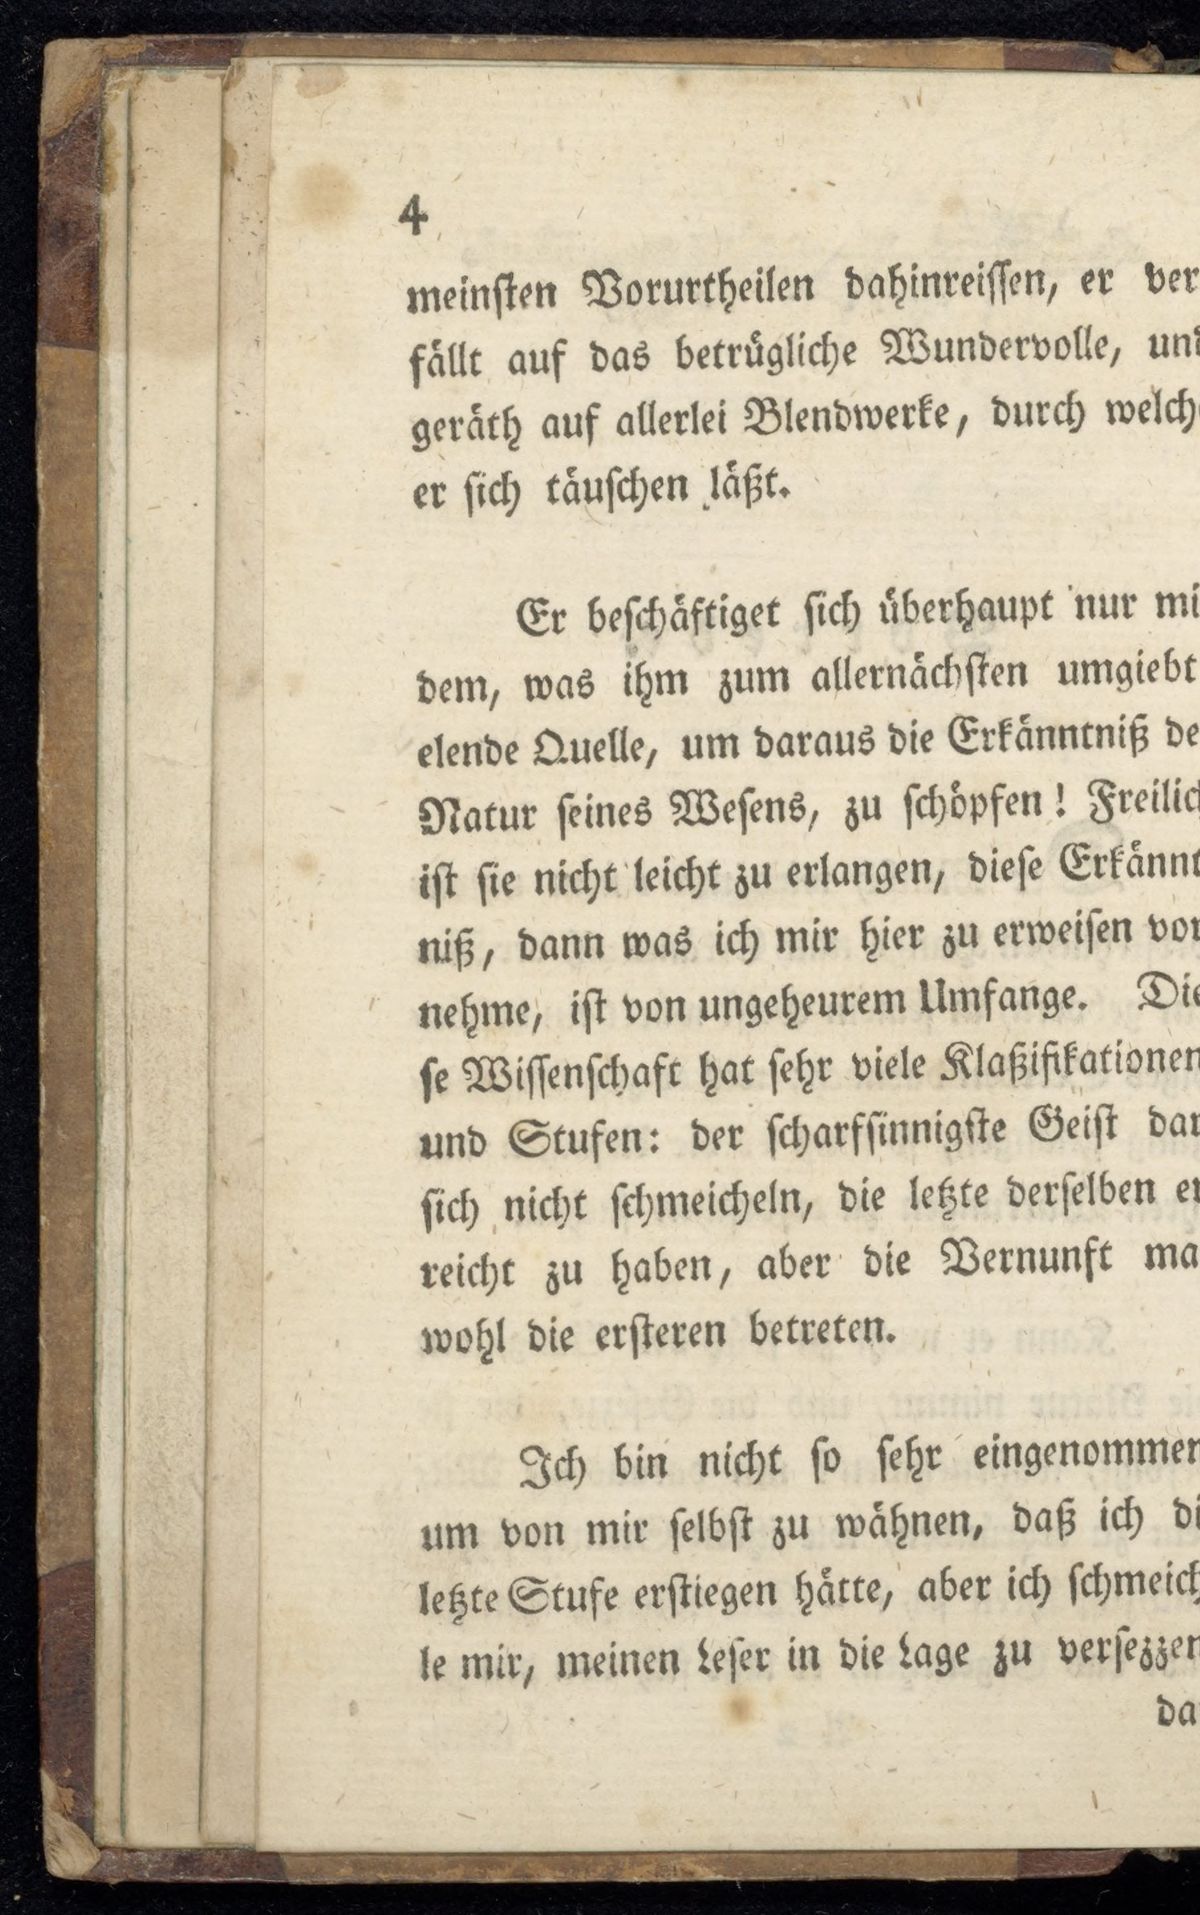 4
meinsten Vorurtheilen dahinreissen, er ver
fällt auf das betrügliche Wundervolle, und
geräth auf allerlei Blendwerke, durch welch
er sich täuschen läßt.
Er beschäftiget sich überhaupt nur mi
dem, was ihm zum allernächsten umgiebt
elende Quelle, um daraus die Erkänntniß de
Natur seines Wesens, zu schöpfen! Freilich
ist sie nicht leicht zu erlangen, diese Erkännt
niß, dann was ich mir hier zu erweisen vor
nehme, ist von ungeheurem Umfange. Die
se Wissenschaft hat sehr viele Klaßifikationen
und Stufen: der scharfsinnigste Geist dar
sich nicht schmeicheln, die letzte derselben er
reicht zu haben, aber die Vernunft ma
wohl die ersteren betreten.
Ich bin nicht so sehr eingenommen
um von mir selbst zu wähnen, daß ich di
letzte Stufe erstiegen hätte, aber ich schmeich
le mir, meinen Leser in die Lage zu versezzen
da